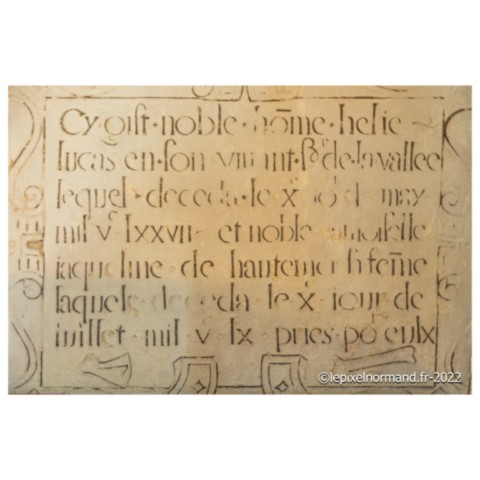 Cy·gist·noble·hōme·helie
lucas en·son viv̄ant·sr de·la vallee
lequel·deceda·le xe de may
mil vc lxxvii· et noble damoiselle
iaqueline·de·hautemer sa feme
laquele·deceda·le·xe·iour·de
iuillet·mil·v·lx·pries·po eulx
©lepixelnormand.fr-2022